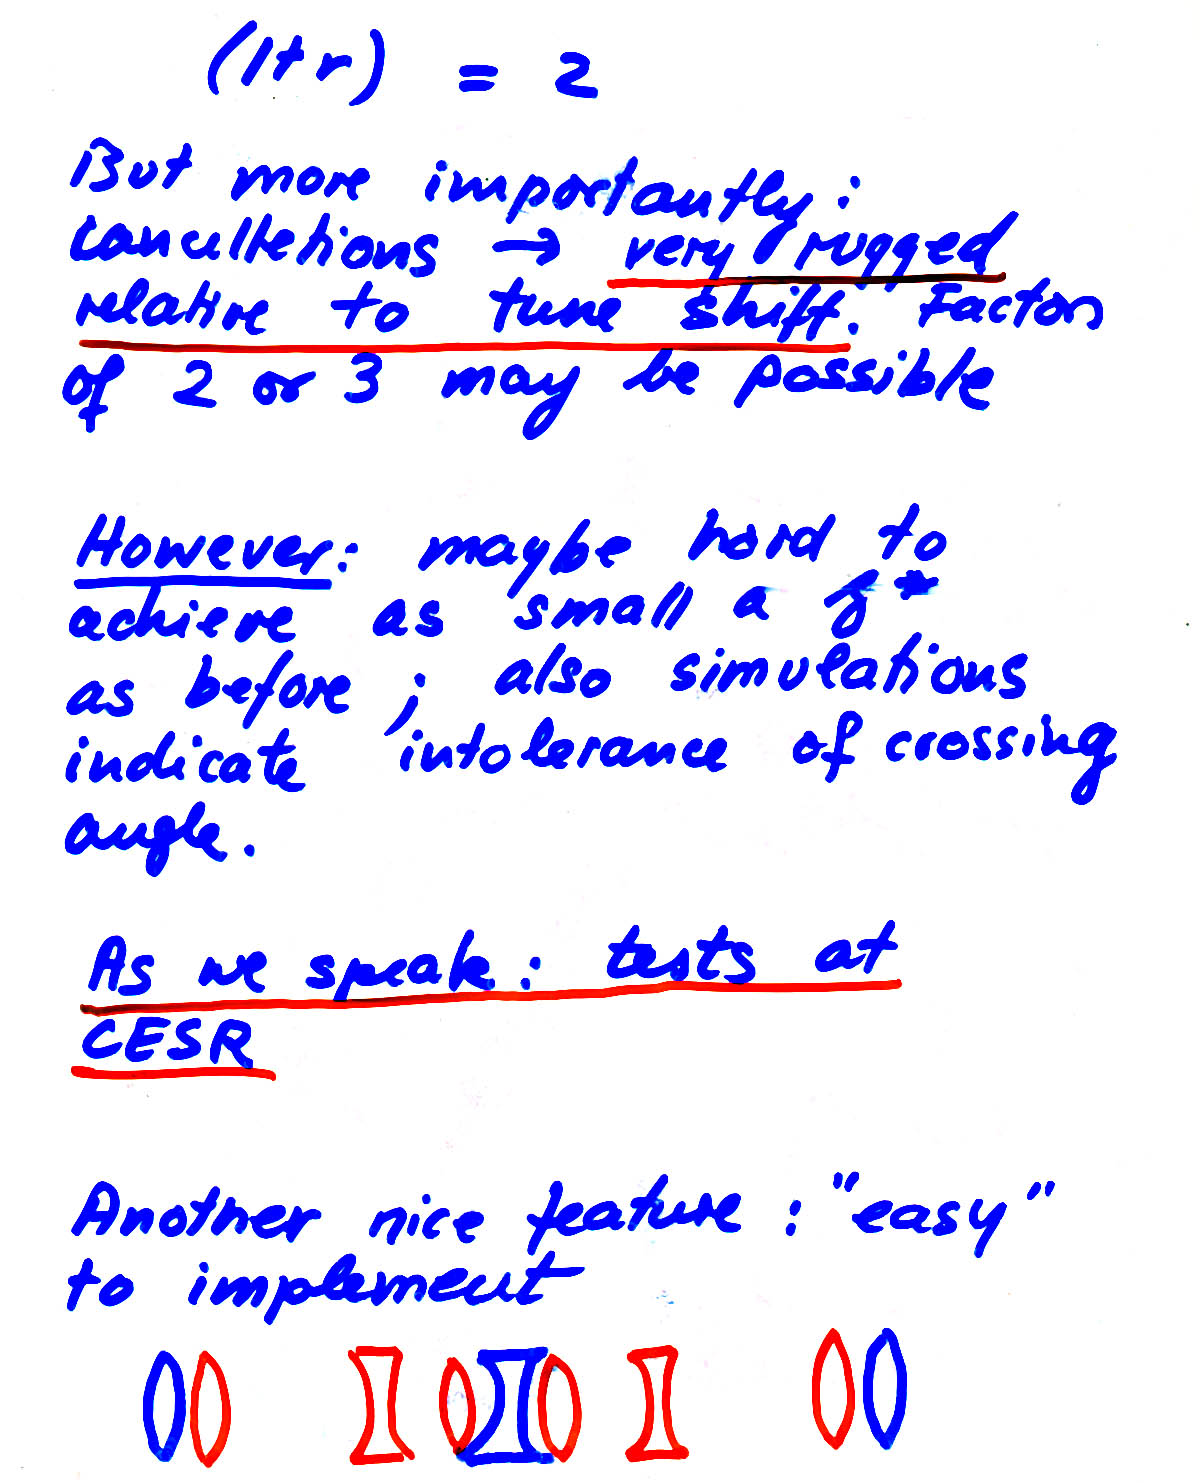 (1+r) = 2
But more importantly:
cancelletions → very rugged
relative to tune shift. Factors
of 2 or 3 may be possible
However: maybe hard to
achieve as small a β*
as before; also simulations
indicate intolerance of crossing
angle.
As we speak: tests at
CESR
Another nice feature: "easy"
to implement